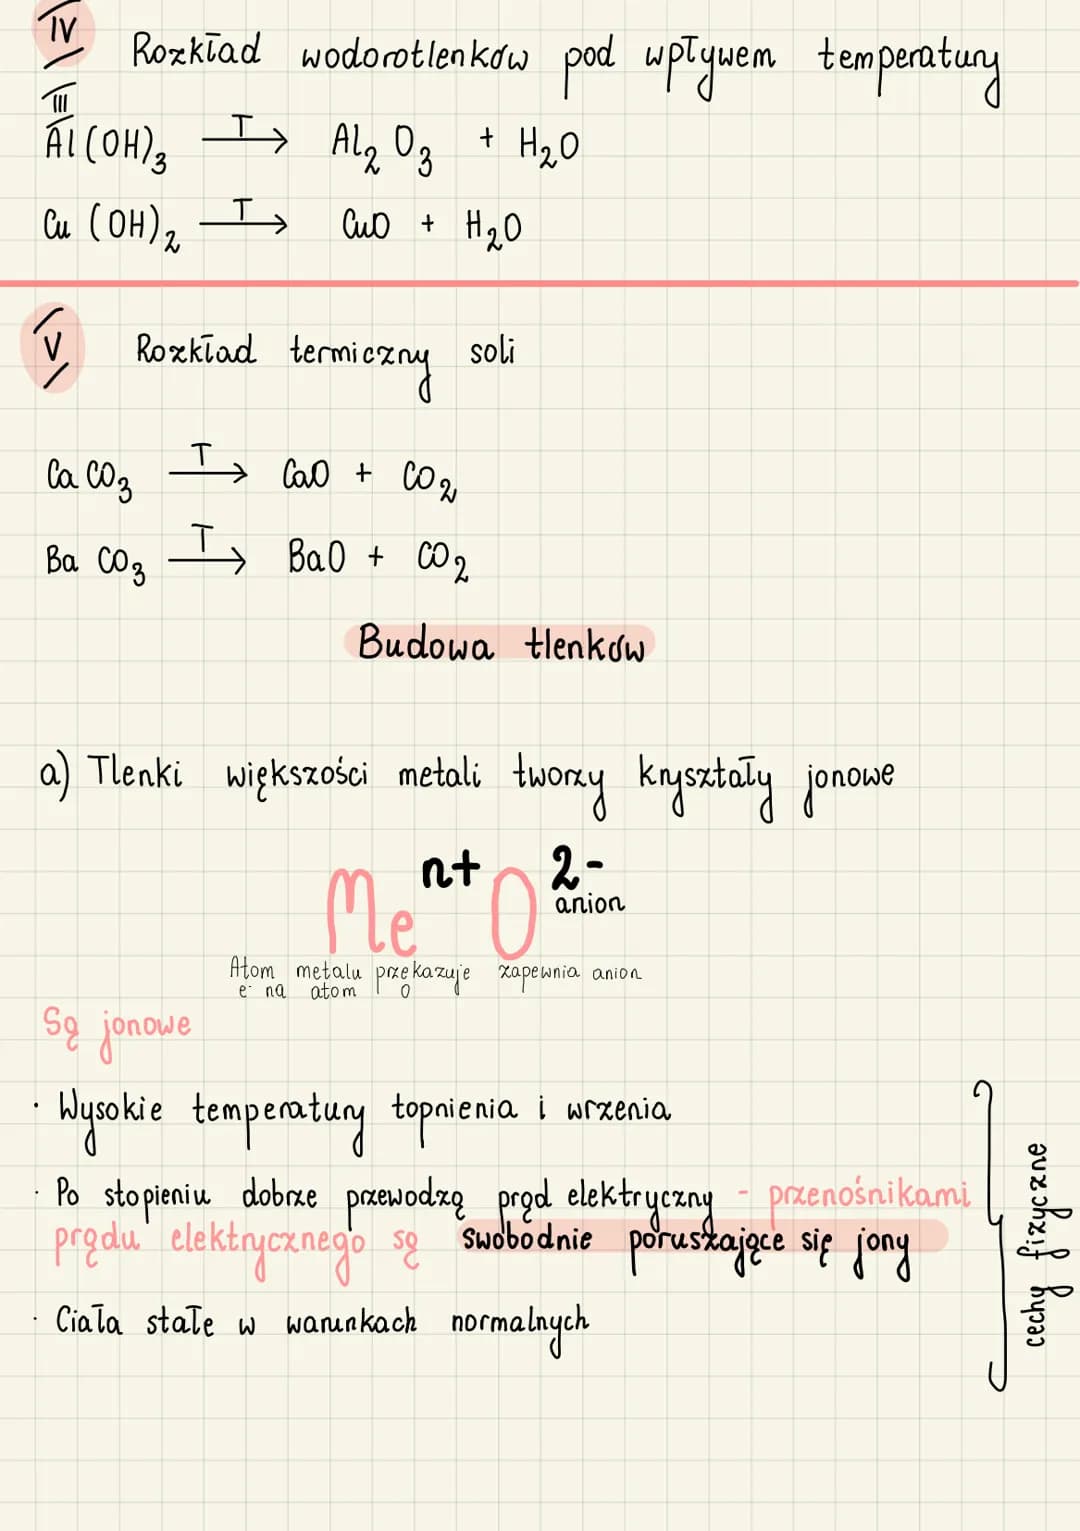 IV
Rozkład wodorotlenków pod wpływem temperatury
III
Al(OH)₃ —T→ Al₂O₃ + H₂O
Cu(OH)₂ —T→ CuO + H₂O
V
Rozkład termiczny soli
CaCO₃ —T→ CaO + CO₂
BaCO₃ —T→ BaO + CO₂
Budowa tlenków
a) Tlenki większości metali tworzy kryształy jonowe
Meⁿ⁺O²⁻
anion
Atom metalu przekazuje zapewnia anion
e⁻ na atom O
Są jonowe
· Wysokie temperatury topnienia i wrzenia
· Po stopieniu dobrze przewodzą prąd elektryczny - przenośnikami
prądu elektrycznego są swobodnie poruszające się jony
· Ciała stałe w warunkach normalnych
cechy fizyczne